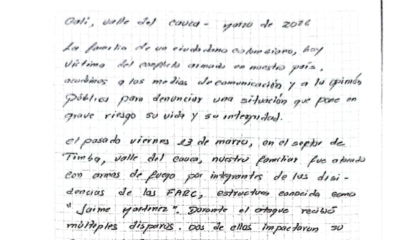 Cali, valle del cauca - marzo de 2026
La familia de un ciudadano colombiano, hoy
víctima del conflicto armado en nuestro país,
acudimos a los medios de comunicación y a la opinión
pública para denunciar una situación que pone en
grave riesgo su vida y su integridad.
el pasado viernes 13 de marzo, en el sector de
Timba, valle del cauca, nuestro familiar fue atacado
con armas de fuego por integrantes de las disi-
dencias de las FARC, estructura conocida como
"Jaime martinez". Durante el ataque recibió
múltiples disparos. Dos de ellos impactaron su